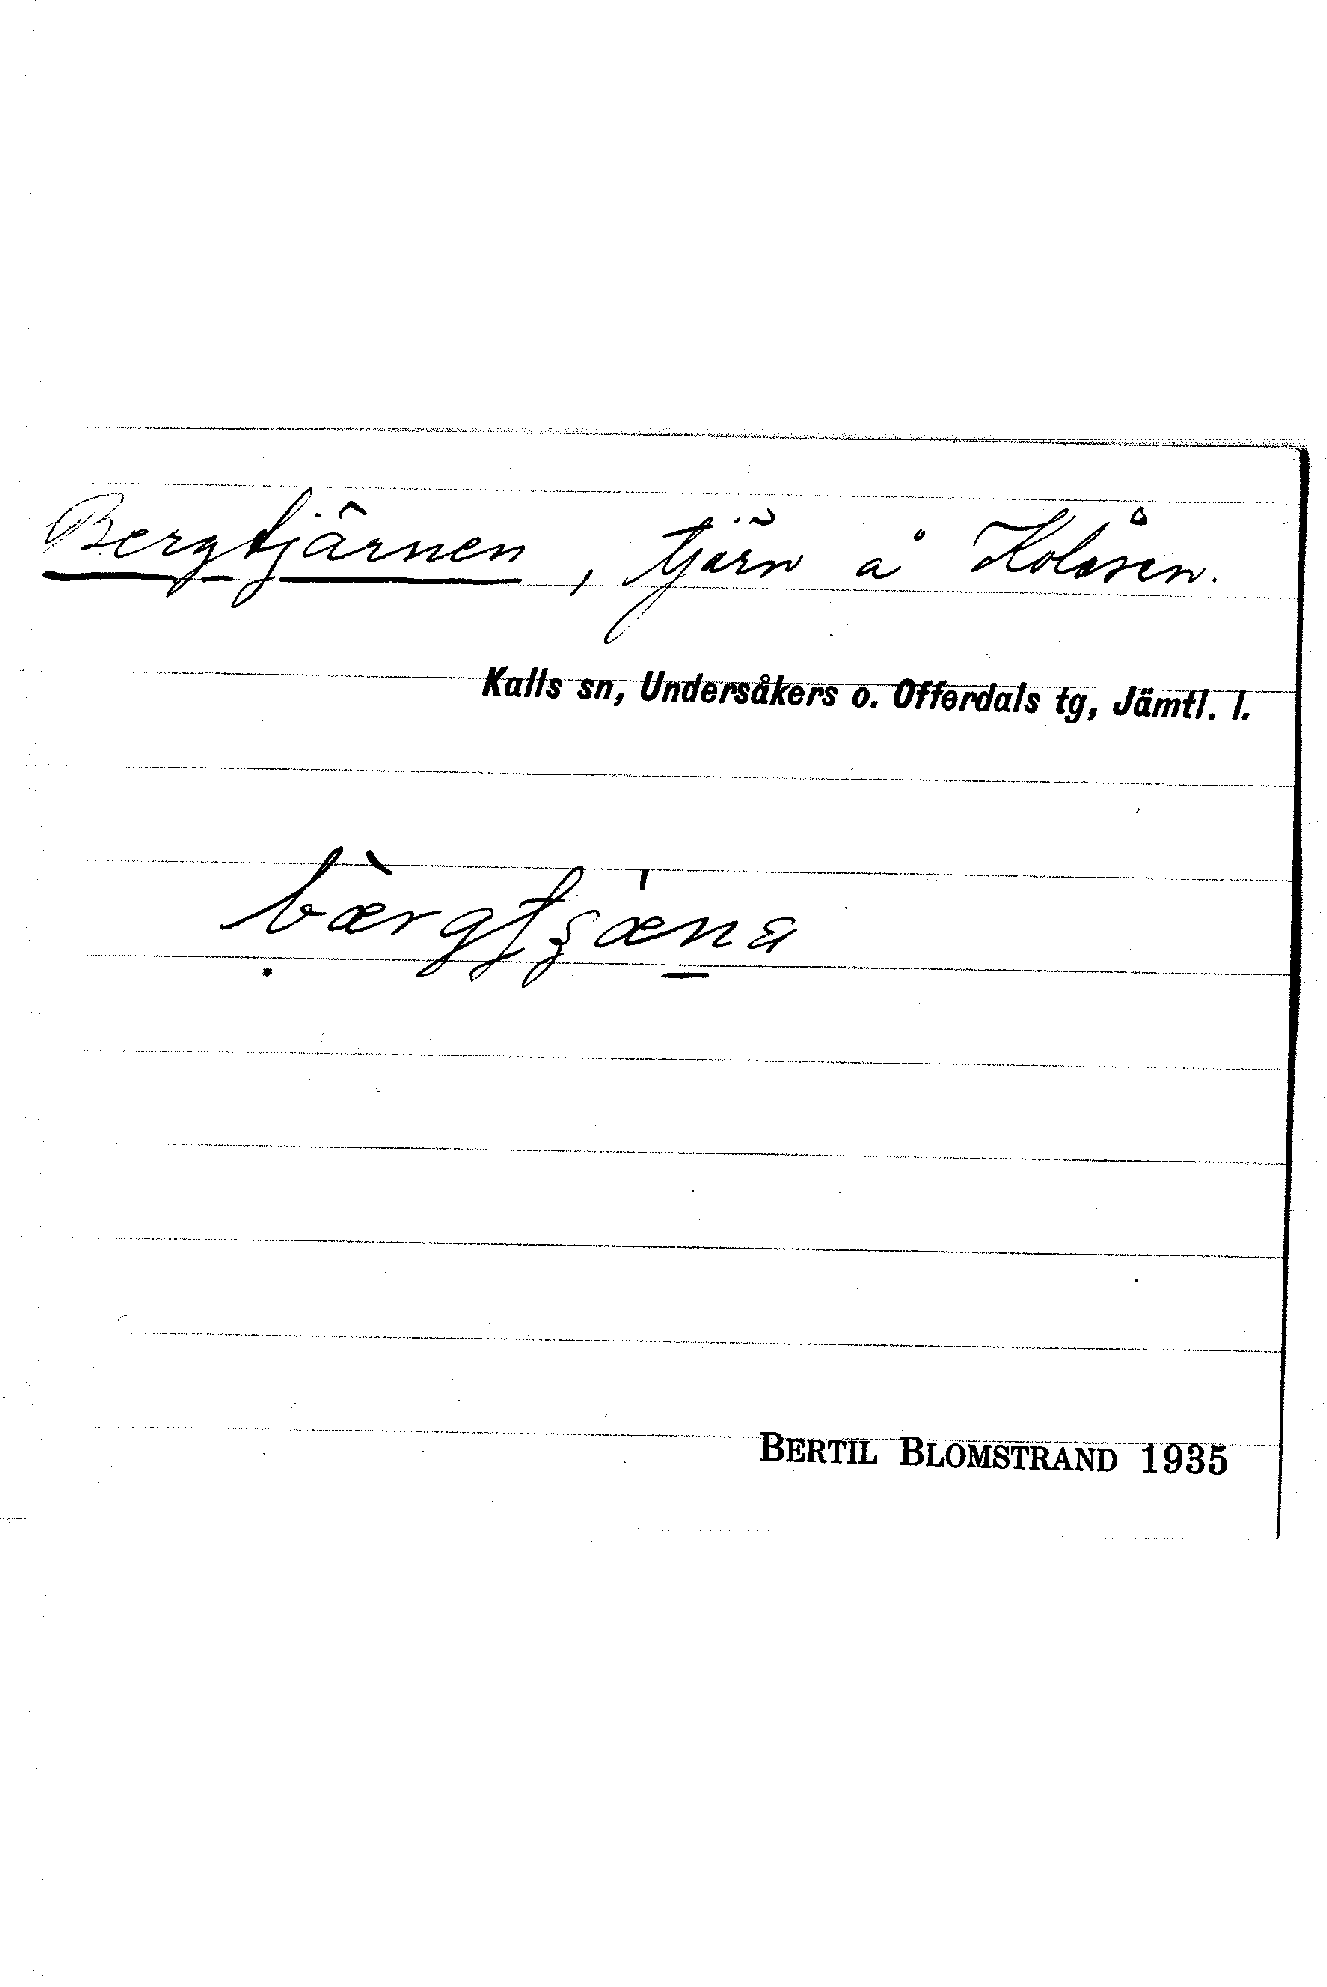 Bergtjärnen, tjärn å Kolåsen.
Kalls sn, Undersåkers o. Offerdals tg, Jämtl. l.
BERTIL BLOMSTRAND 1935